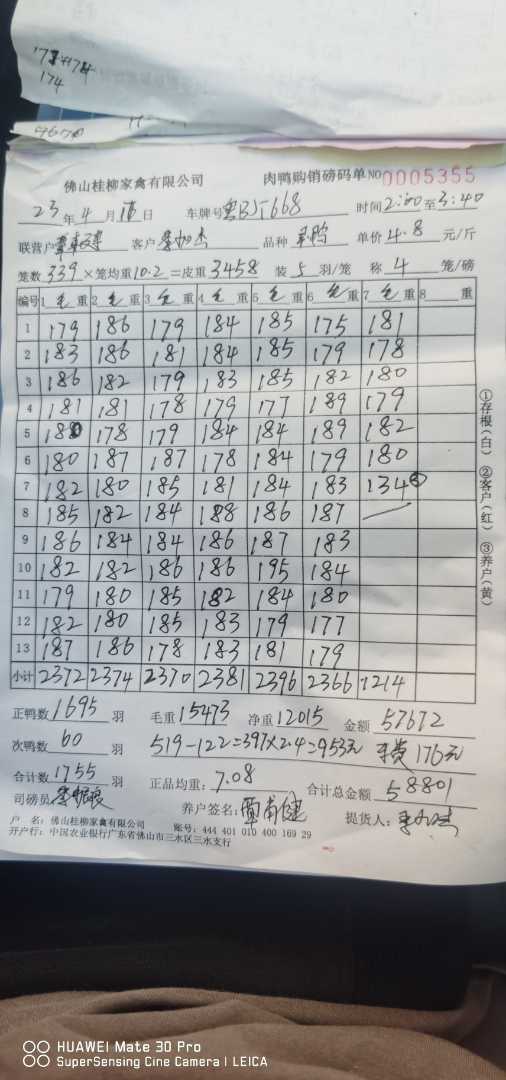 174
9670
佛山桂柳家禽有限公司 肉鸭购销磅码单 NO 0005355
23年4月 日 车牌号 668 时间2:00至3:40
联营户 客户 品种 鸭 单价4.8元/斤
笼数339×笼均重10.2=皮重3458 装5羽/笼 称4笼/磅
编号 1毛重 2毛重 3毛重 4毛重 5毛重 6毛重 7毛重 8 重
1 179 186 179 184 185 175 181
2 183 186 181 184 185 179 178
3 186 182 179 183 185 182 180
4 181 181 178 179 177 189 179
5 178 179 184 184 189 182
6 180 187 187 178 184 179 180
7 182 180 185 181 184 183 134③
8 185 182 184 188 186 187
9 186 184 184 186 187 183
10 182 182 186 186 195 184
11 179 180 185 182 184 180
12 182 180 185 183 179 177
13 187 186 178 183 181 179
小计 2372 2374 2370 2381 2396 2366 1214
①存根(白) ②客户(红) ③养户(黄)
正鸭数1695羽 毛重15473 净重12015 金额57672
次鸭数60羽 519-122=397×2.4=953元 176元
合计数1755羽 正品均重:7.08 合计总金额58801
司磅员 养户签名: 提货人:
户 名:佛山桂柳家禽有限公司 账号:444 401 010 400 169 29
开户行:中国农业银行广东省佛山市三水区三水支行
HUAWEI Mate 30 Pro
SuperSensing Cine Camera | LEICA